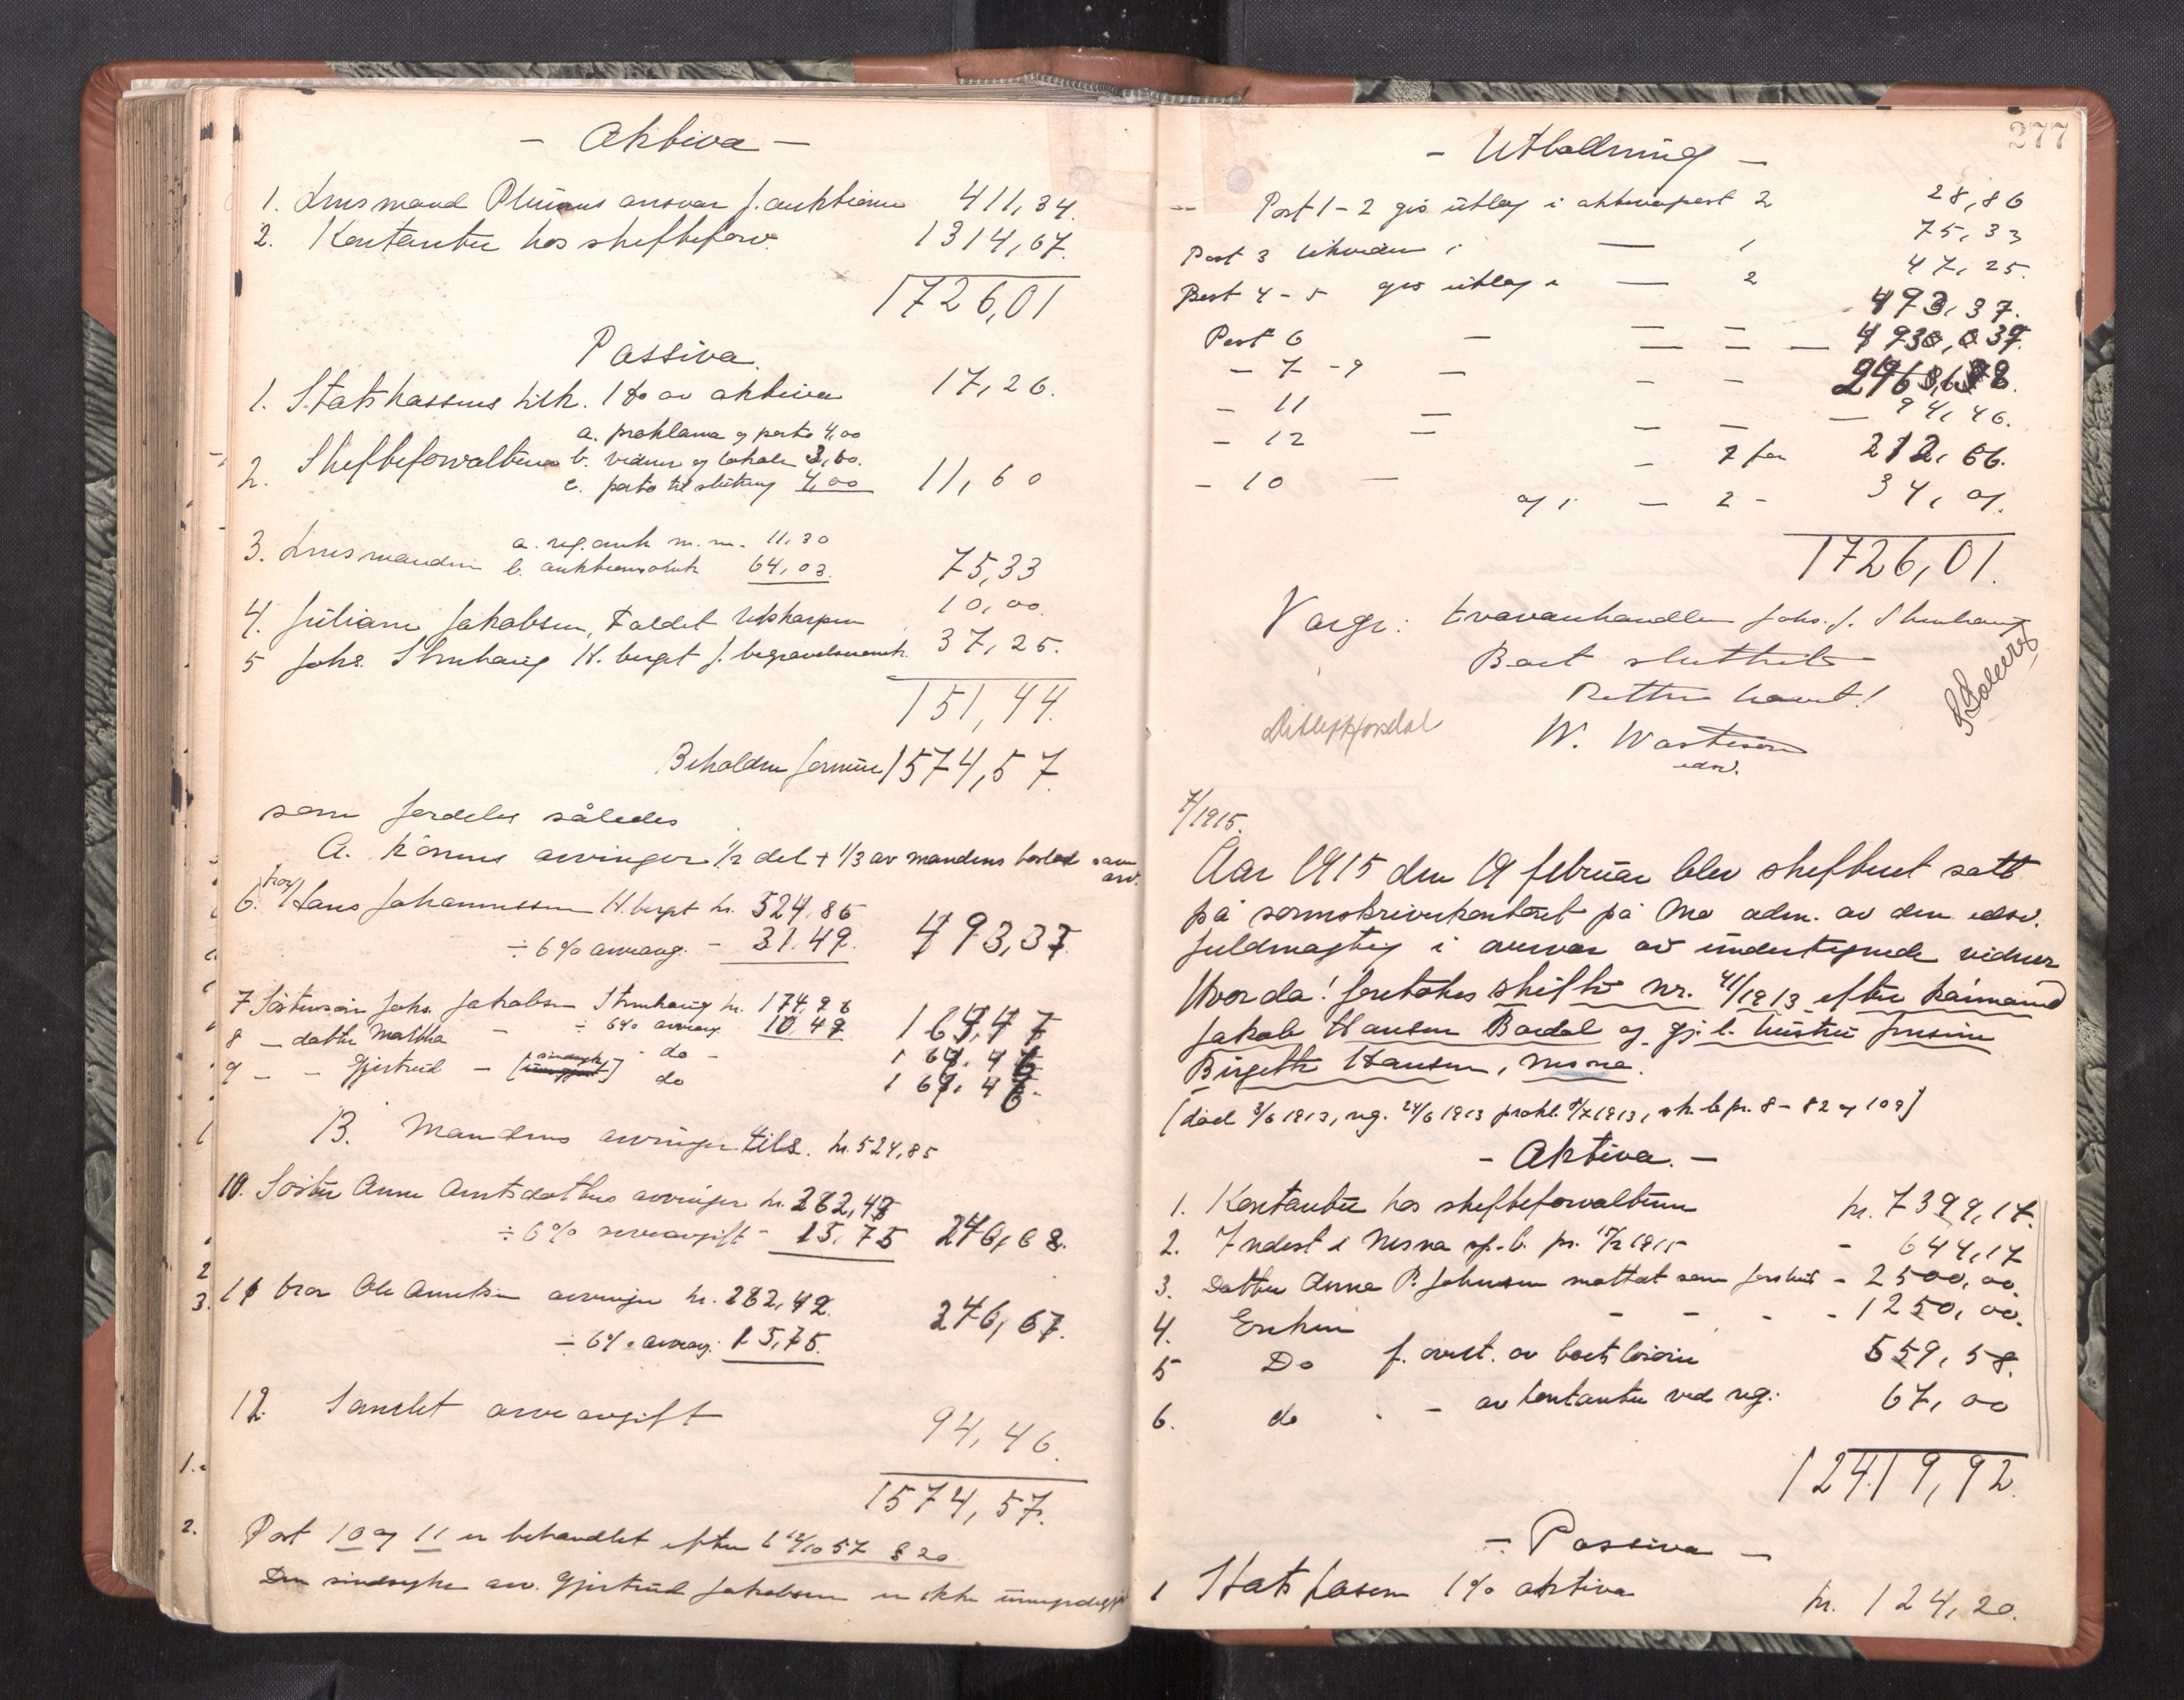 - Aktiva -
1. Lensmand Plünns ansvar f. auktionen 411,34.
2. Kontanter hos skifteforv. 1314,67.
1726,01
Passiva.
1. Statskassens tilk. 1 % av aktiva 17,26.
a. proklama og porto 4,00
2. Skifteforvalteren b. vidner og lokale 3,60. 11,60
c. porto til slutning 4,00
3. Lensmanden a. reg. auk m.m. 11,30
b. auktionsomk 64,03. 75,33
4. Juliane Jakobsen, 10,00.
5 Johs. Stenhaug H. berget f. begravelsesomk. 37,25.
151,44.
Beholden formue 1574,57.
som fordeles således
A. Konens arvinger 1/2 del + 1/3 av mandens boslod som arv.
6. bror Hans Johannessen H. berget kr. 524,86
÷ 6% arveavg. - 31.49. 493,37
7 Søstersøn Johs. Jakobsen Stenhaug kr. 174,96
÷ 6% arveavg. 10,49 164,47
8 - datter Martha - do - 164.46
9 - - Gjertrud - [sindssyk] do 164,46.
B. Mandens arvinger tils. kr. 524,85
10. Søster Anne Arntsdatters arvinger kr. 262,43
÷ 6% arveavgift - 15,75 246,68.
11 bror Ole Arntsen arvinger kr. 262,42.
÷ 6% arveavg. 15,75. 246,67.
12. Samlet arveavgift 94,46.
1574,57.
Post 10 og 11 er behandlet efter l 12/10 57 § 20
Den sindssyke arv. Gjertrud Jakobsen er ikke umyndiggjort
277
- Utlodning -
Post 1-2 gis utlæg i aktivapost 2 28,86
Post 3 likvideres i — 1 75,33
Post 4-5 gis utlæg i — 2 47,25.
Post 6 - — — 493,37.
- 7-9 - - -
- 11 = — —
- 12 - - - 94,46.
- 10 - - 1 for 212,66.
og i - 2 - 34,01.
1726,01.
Varge: kvævanhandler Johs. J. Stenhaug
Boet sluttet
Retten hævet!
W. Wasteson
edsv.
7/1915.
Aar 1915 den 19 februar blev skifteret satt
på sorenskriverkontoret på Mo adm. av den edsv.
fuldmægtig i overvær av undertegnede vidner
Hvorda! foretokes skifte nr. 41/1913 efter kårmand
Jakob Hansen Bardal og gj.l. hustru Jensine
Birgitte Hansen, Nesna.
[død 3/6 1913, reg. 24/6 1913 prokl. 1/7 1913, sk.b.pr. 8 - 82 og 109]
- Aktiva. -
1. Kontanter hos skifteforvalteren kr. 7399,17.
2. Indest i Nesna sp.b. pr. 15/2 1915 - 644,17
3. Datter Anne P. Johnsen mottat som forskud - 2500,00.
4. Enken - - - - 1250,00.
5 Do f. overt. av boets løsøre 559,58.
6. do - - av kontanter ved reg: 67,00
12419,92.
- Passiva -
1 Statskassen 1% aktiva kr. 124,20.